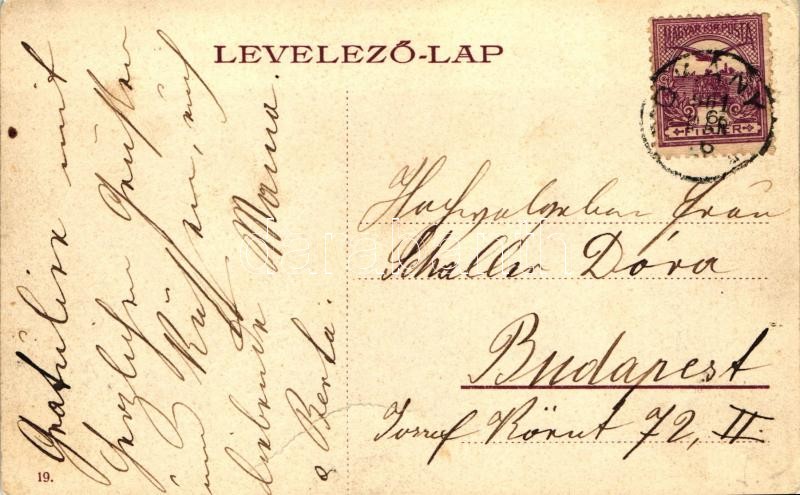 LEVELEZŐ-LAP
MAGYAR KIR. POSTA
6
FILLÉR
Gratulire mit
herzlichen Grüssen
und Küssen, auf
liebende Mama
& Berta.
Hochwolgeboren Frau
Schaller Dóra
Budapest
József Körút 72, II.
19.